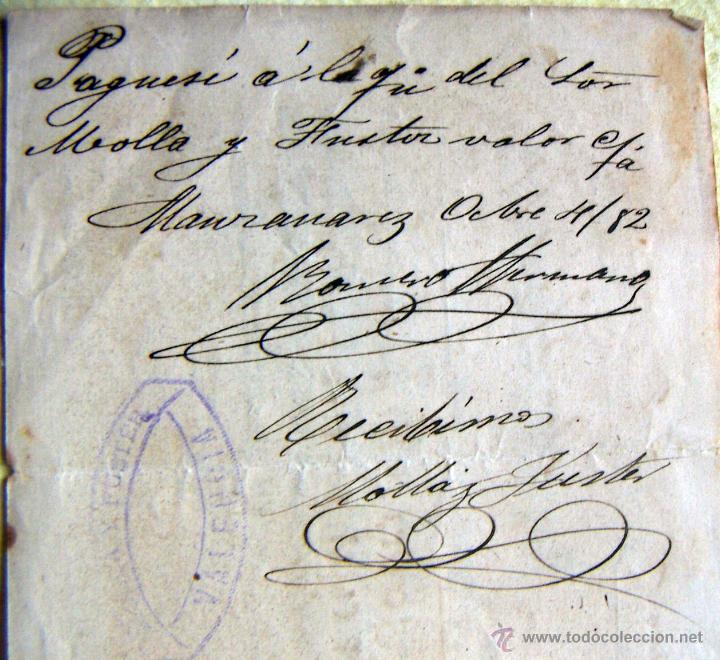 Paguese á la o/n del Sor
Molla y Fuster valor c/ta
Manzanarez Octbre 4/82
Romero Hermano
Recibimos
Molla y Fuster
Y FUSTER
VALENCIA
© www.todocoleccion.net